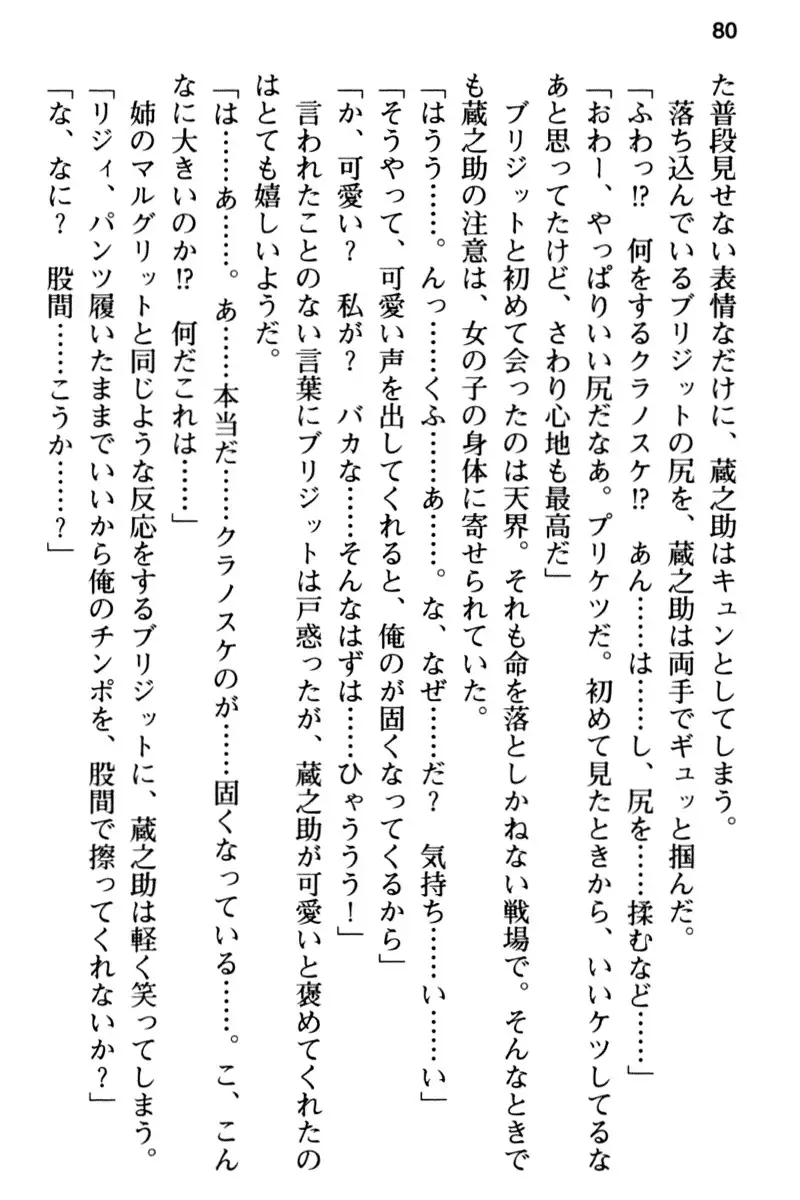 80
た普段見せない表情なだけに、蔵之助はキュンとしてしまう。
落ち込んでいるブリジットの尻を、蔵之助は両手でギュッと掴んだ。
「ふわっ!?　何をするクラノスケ!?　あん……は……し、尻を……揉むなど……」
「おわー、やっぱりいい尻だなぁ。プリケツだ。初めて見たときから、いいケツしてるな
あと思ってたけど、さわり心地も最高だ」
ブリジットと初めて会ったのは天界。それも命を落としかねない戦場で。そんなときで
も蔵之助の注意は、女の子の身体に寄せられていた。
「はうう……。んっ……くふ……あ……。な、なぜ……だ？　気持ち……い……い」
「そうやって、可愛い声を出してくれると、俺のが固くなってくるから」
「か、可愛い？　私が？　バカな……そんなはずは……ひゃううう！」
言われたことのない言葉にブリジットは戸惑ったが、蔵之助が可愛いと褒めてくれたの
はとても嬉しいようだ。
「は……あ……。あ……本当だ……クラノスケのが……固くなっている……。こ、こん
なに大きいのか!?　何だこれは……」
姉のマルグリットと同じような反応をするブリジットに、蔵之助は軽く笑ってしまう。
「リジィ、パンツ履いたままでいいから俺のチンポを、股間で擦ってくれないか？」
「な、なに？　股間……こうか……？」